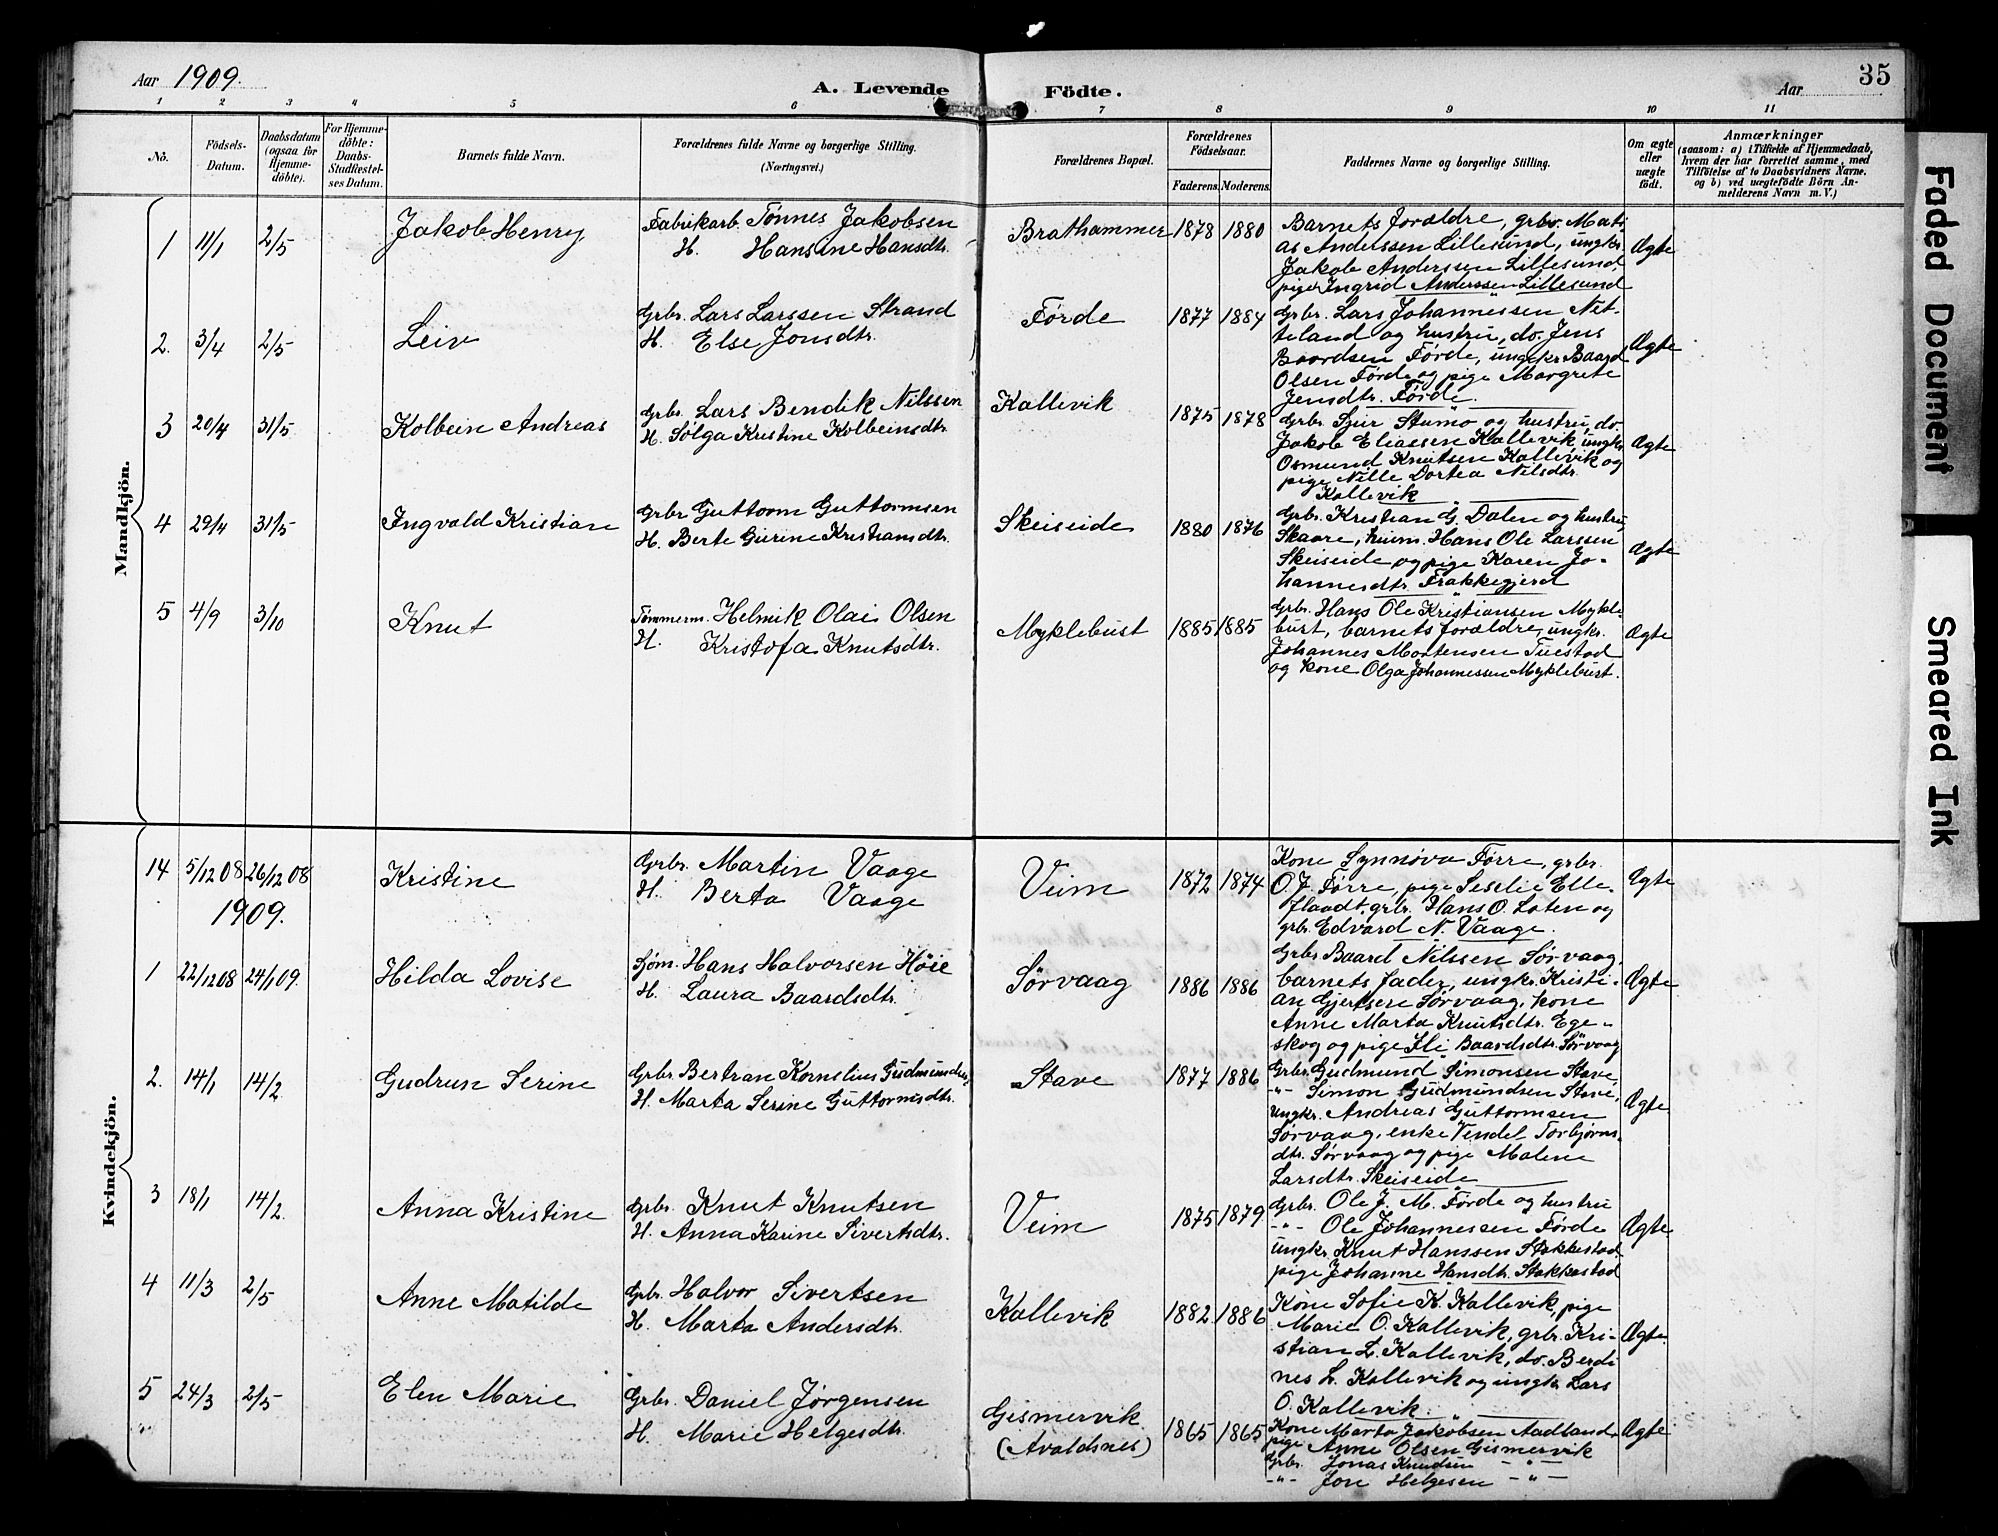 Aar 1909.
A. Levende Födte.
Aar
35
1 2 3 4 5 6 7 8 9 10 11
No.
Födsels-Datum.
Daabsdatum (ogsaa for Hjemmedöbte).
For Hjemmedöbte: Daabs-Stadfæstelses Datum.
Barnets fulde Navn.
Forældrenes fulde Navne og borgerlige Stilling. (Næringsvei.)
Forældrenes Bopæl.
Forældrenes Födselsaar.
Faderens. Moderens.
Faddernes Navne og borgerlige Stilling.
Om ægte eller uægte födt.
Anmærkninger
(saasom: a) i Tilfælde af Hjemmedaab,
hvem der har forrettet samme, med
Tilföielse af to Daabsvidners Navne,
og b) ved uægtefödte Börn An-
melderens Navn m. V.)
Mandkjön.
1 11/1 2/5 Jakob Henry
Fabrikarb. Tønnes Jakobsen
H. Hansine Hansdtr.
Brathammer 1878 1880
Barnets forældre, grbr. Mati-
as Anderssen Lillesund, ungkr.
Jakob Andersen Lillesund,
pige Ingrid Anderssen Lillesund
Ægte
2. 3/4 2/5 Leiv
Grbr. Lars Larssen Strand
H. Else Jonsdtr.
Førde 1877 1884
Grbr. Lars Johannessen Nit-
teland og hustru, do. Jens
Baardsen Førde, ungkr. Baard
Olsen Førde og pige Margrete
Jensdtr. Førde.
Ægte
3 20/4 31/5 Kolbein Andreas
Grbr. Lars Bendik Nilssen
H. Sølga Kristine Kolbeinsdtr.
Kallevik 1875 1878
Grbr. Sjur Stumo og hustru, do.
Jakob Eliassen Kallevik ungkr.
Osmund Knutsen Kallevik og
pige Nille Dortea Nilsdtr.
Kallevik
Ægte
4 29/4 31/5 Ingvald Kristian
Grbr Guttorm Guttormsen
H. Berte Gurine Kristiansdtr.
Skeiseide 1880 1876
Grbr. Kristian G. Dalen og hustru
Skaare, huum. Hans Ole Larssen
Skeiseide og pige Karen Jo-
hannesdtr. Frakkegjerd
Ægte
5 4/9 3/10 Knut
Tømmerm. Helmik Olai Olsen
H. Kristofa Knutsdtr.
Myklebust 1885 1885
Grbr. Hans Ole Kristiansen Mykle-
bust, barnets forældre, ungkr.
Johannes Mortensen Tuestad
og kone Olga Johannessen Myklebust.
Ægte
Kvindekjön.
14 5/12 08 26/12 08 Kristine
Grbr. Martin Vaage
H. Berta Vaage
Veim 1872 1874
Kone Synnøva Førre, grbr.
O. J. Førre, pige Seselie Elle-
flaadt, grbr. Hans O. Loten og
grbr. Edvard N. Vaage.
Ægte
1909.
1 22/12 08 24/1 09. Hilda Lovise
Sjøm. Hans Halvorsen Høie
H. Laura Baardsdtr.
Sørvaag 1886 1886
Grbr Baard Nilssen Sørvaag,
barnets fader, ungkr. Kristi-
an Gjertsen Sørvaag, kone
Anne Marta Knutsdtr. Ege-
skog og pige Ili Baardsdtr. Sørvaag
Ægte
2. 14/1 14/2. Gudrun Serine
Grbr. Bertran Kornelius Gudmundsen,
H. Marta Serine Guttormsdtr.
Stave 1877 1886
Grbr. Gudmund Simonsen Stave,
-"- Simon Gudmundsen Stave,
ungkr. Andreas Guttormsen
Sørvaag, enke Vendel Torbjørns-
dtr. Sørvaag og pige Malene
Larsdtr. Skeiseide
Ægte
3 18/1 14/2. Anna Kristine
Grbr. Knut Knutsen
H. Anna Karine Sivertsdtr.
Veim 1875 1879
Grbr. Ole J. M. Førde og hustru
-"- Ole Johannessen Førde
ungkr. Knut Hanssen Stakkestad
pige Johanne Hansdtr. Stakkestad
Ægte
4 11/3 2/5 Anne Matilde
Grbr. Halvor Sivertsen
H. Marta Andersdtr.
Kallevik 1882 1886
Kone Sofie K. Kallevik, pige
Marie O. Kallevik, grbr. Kri-
stian L. Kallevik, do. Berdi-
nes L. Kallevik og ungkr. Lars
O. Kallevik.
Ægte.
5 24/3 2/5 Elen Marie
Grbr. Daniel Jørgensen
H. Marie Helgesdtr.
Gismervik
(Avaldsnes) 1865 1865
Kone Marta Jakobsen Aadland,
pige Anne Olsen Gismervik
Grbr. Jonas Knudsen -"-
-"- Jon Helgesen -"-
Ægte
Faded Document
Smeared Ink